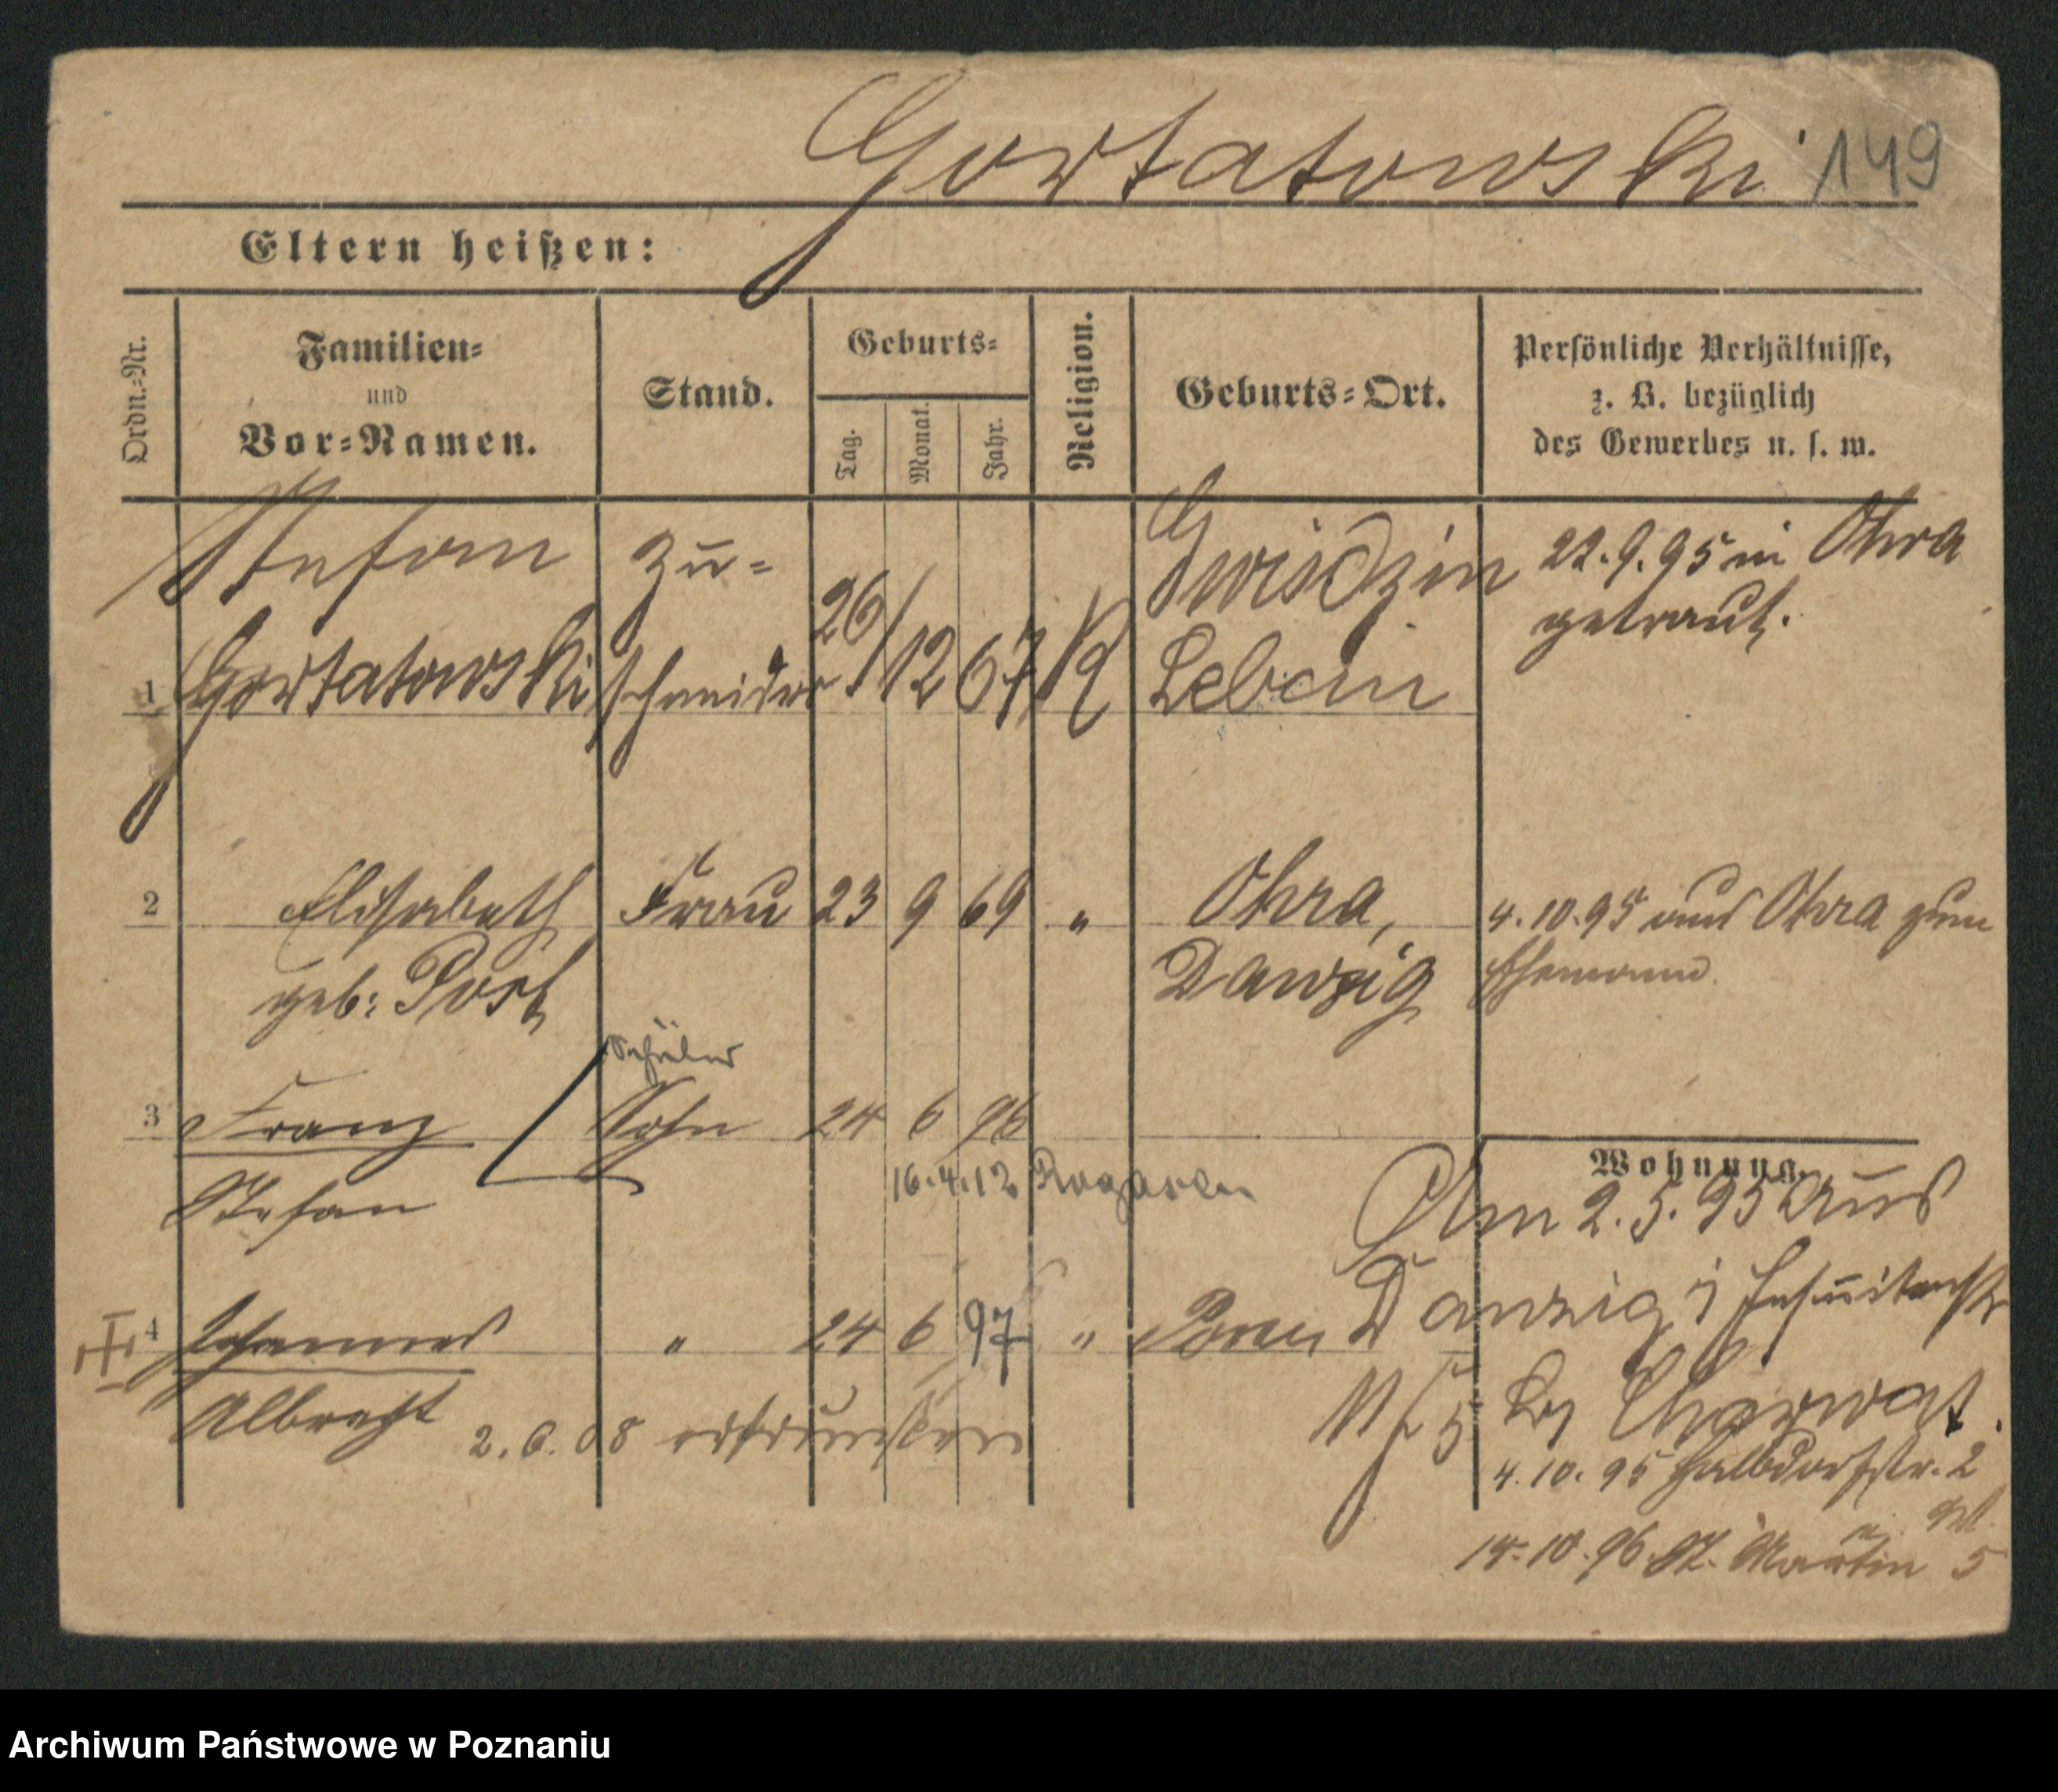 Gortatowski 149
Eltern heißen:
Ordn.-Nr.
Familien-
und
Vor-Namen.
Stand.
Geburts-
Tag.
Monat.
Jahr.
Religion.
Geburts-Ort.
Persönliche Verhältnisse,
z. B. bezüglich
des Gewerbes u. s. w.
Stefan Zu- Gwisdzin 22.9.95 in Ohra
getraut.
1 Gortatowski schneider 26/12 67 K
2 Elisabeth Frau 23 9 69 " Ohra, 4.10.95 aus Ohra zum
geb: Post Danzig Ehemann.
Schüler
3 Franz Sohn 24 6 96
16.4.12
Stefan
Wohnung.
Am 2.5.95 aus
Danzig Jesuitenstr
4 Johannes " 24 6 97 " Posen
Albrecht 2.6.08 ertrunken
4.10.95 Halbdorfstr. 2
14.10.96 St. Martin 5
Archiwum Państwowe w Poznaniu